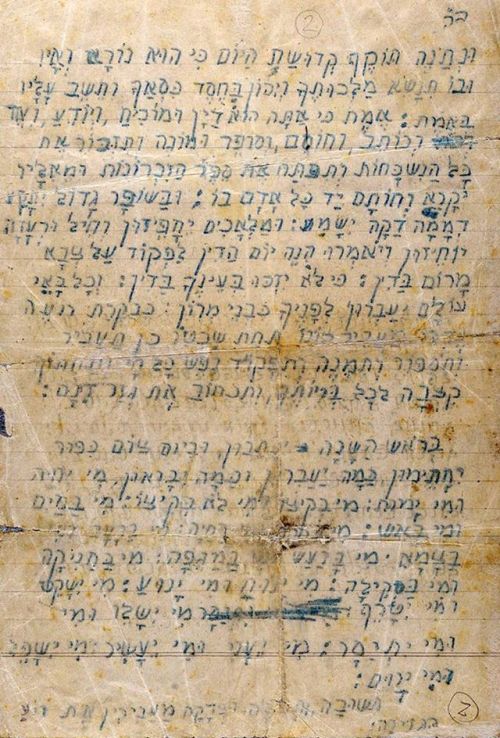 בה
2
ונתנה תוקף קדושת היום כי הוא נורא ואיו
ובו תנשא מלכותך ויכון בחסד כסאך ותשב עליו
באמת: אמת כי אתה הוא דין ומוכיח, ויודע, ועד
וכותב, וחותם, וסופר ומונה ותזכור את
כל הנשכחות ותפתח את ספר הזכרונות ומאליו
יקרא וחותם יד כל אדם בו: ובשופר גדול יתקע
דממה דקה ישמע: ומלאכים יחפזון וחיל ורעדה
יוחיזון ויאמרו הנה יום הדין לפקוד על צבא
מרום בדין: כי לא יזכו בעינך בדין: וכל באי
עולם יעברון לפניך כבני מרון: כבקרת רועה
תחת שבטו כן תעביר
ותספור ותמנה ותפקוד נפש כל חי ותחתוך
קצבה לכל בריותך, ותכתוב את גזר דינם:
בראש השנה יכתבון, וביום צום כפור
יחתימון, כמה יעברון וכמה יבראון, מי יחיה
ומי ימות: מי בקיצו ומי לא בקיצו: מי במים
ומי באש: מי בחרב מי בחיה: מי ברעב מי
בצמא: מי ברעש מי במגפה: מי בחניקה
ומי בסקילה: מי ינוח ומי ינוע: מי ישקט
ומי יטרף מי ישלו ומי
ומי יתיסר: מי יעני ומי יעשיר: מי ישפל
ומי ירום:
ותשובה ותפלה וצדקה מעבירין את רוע
הגזירה:
2